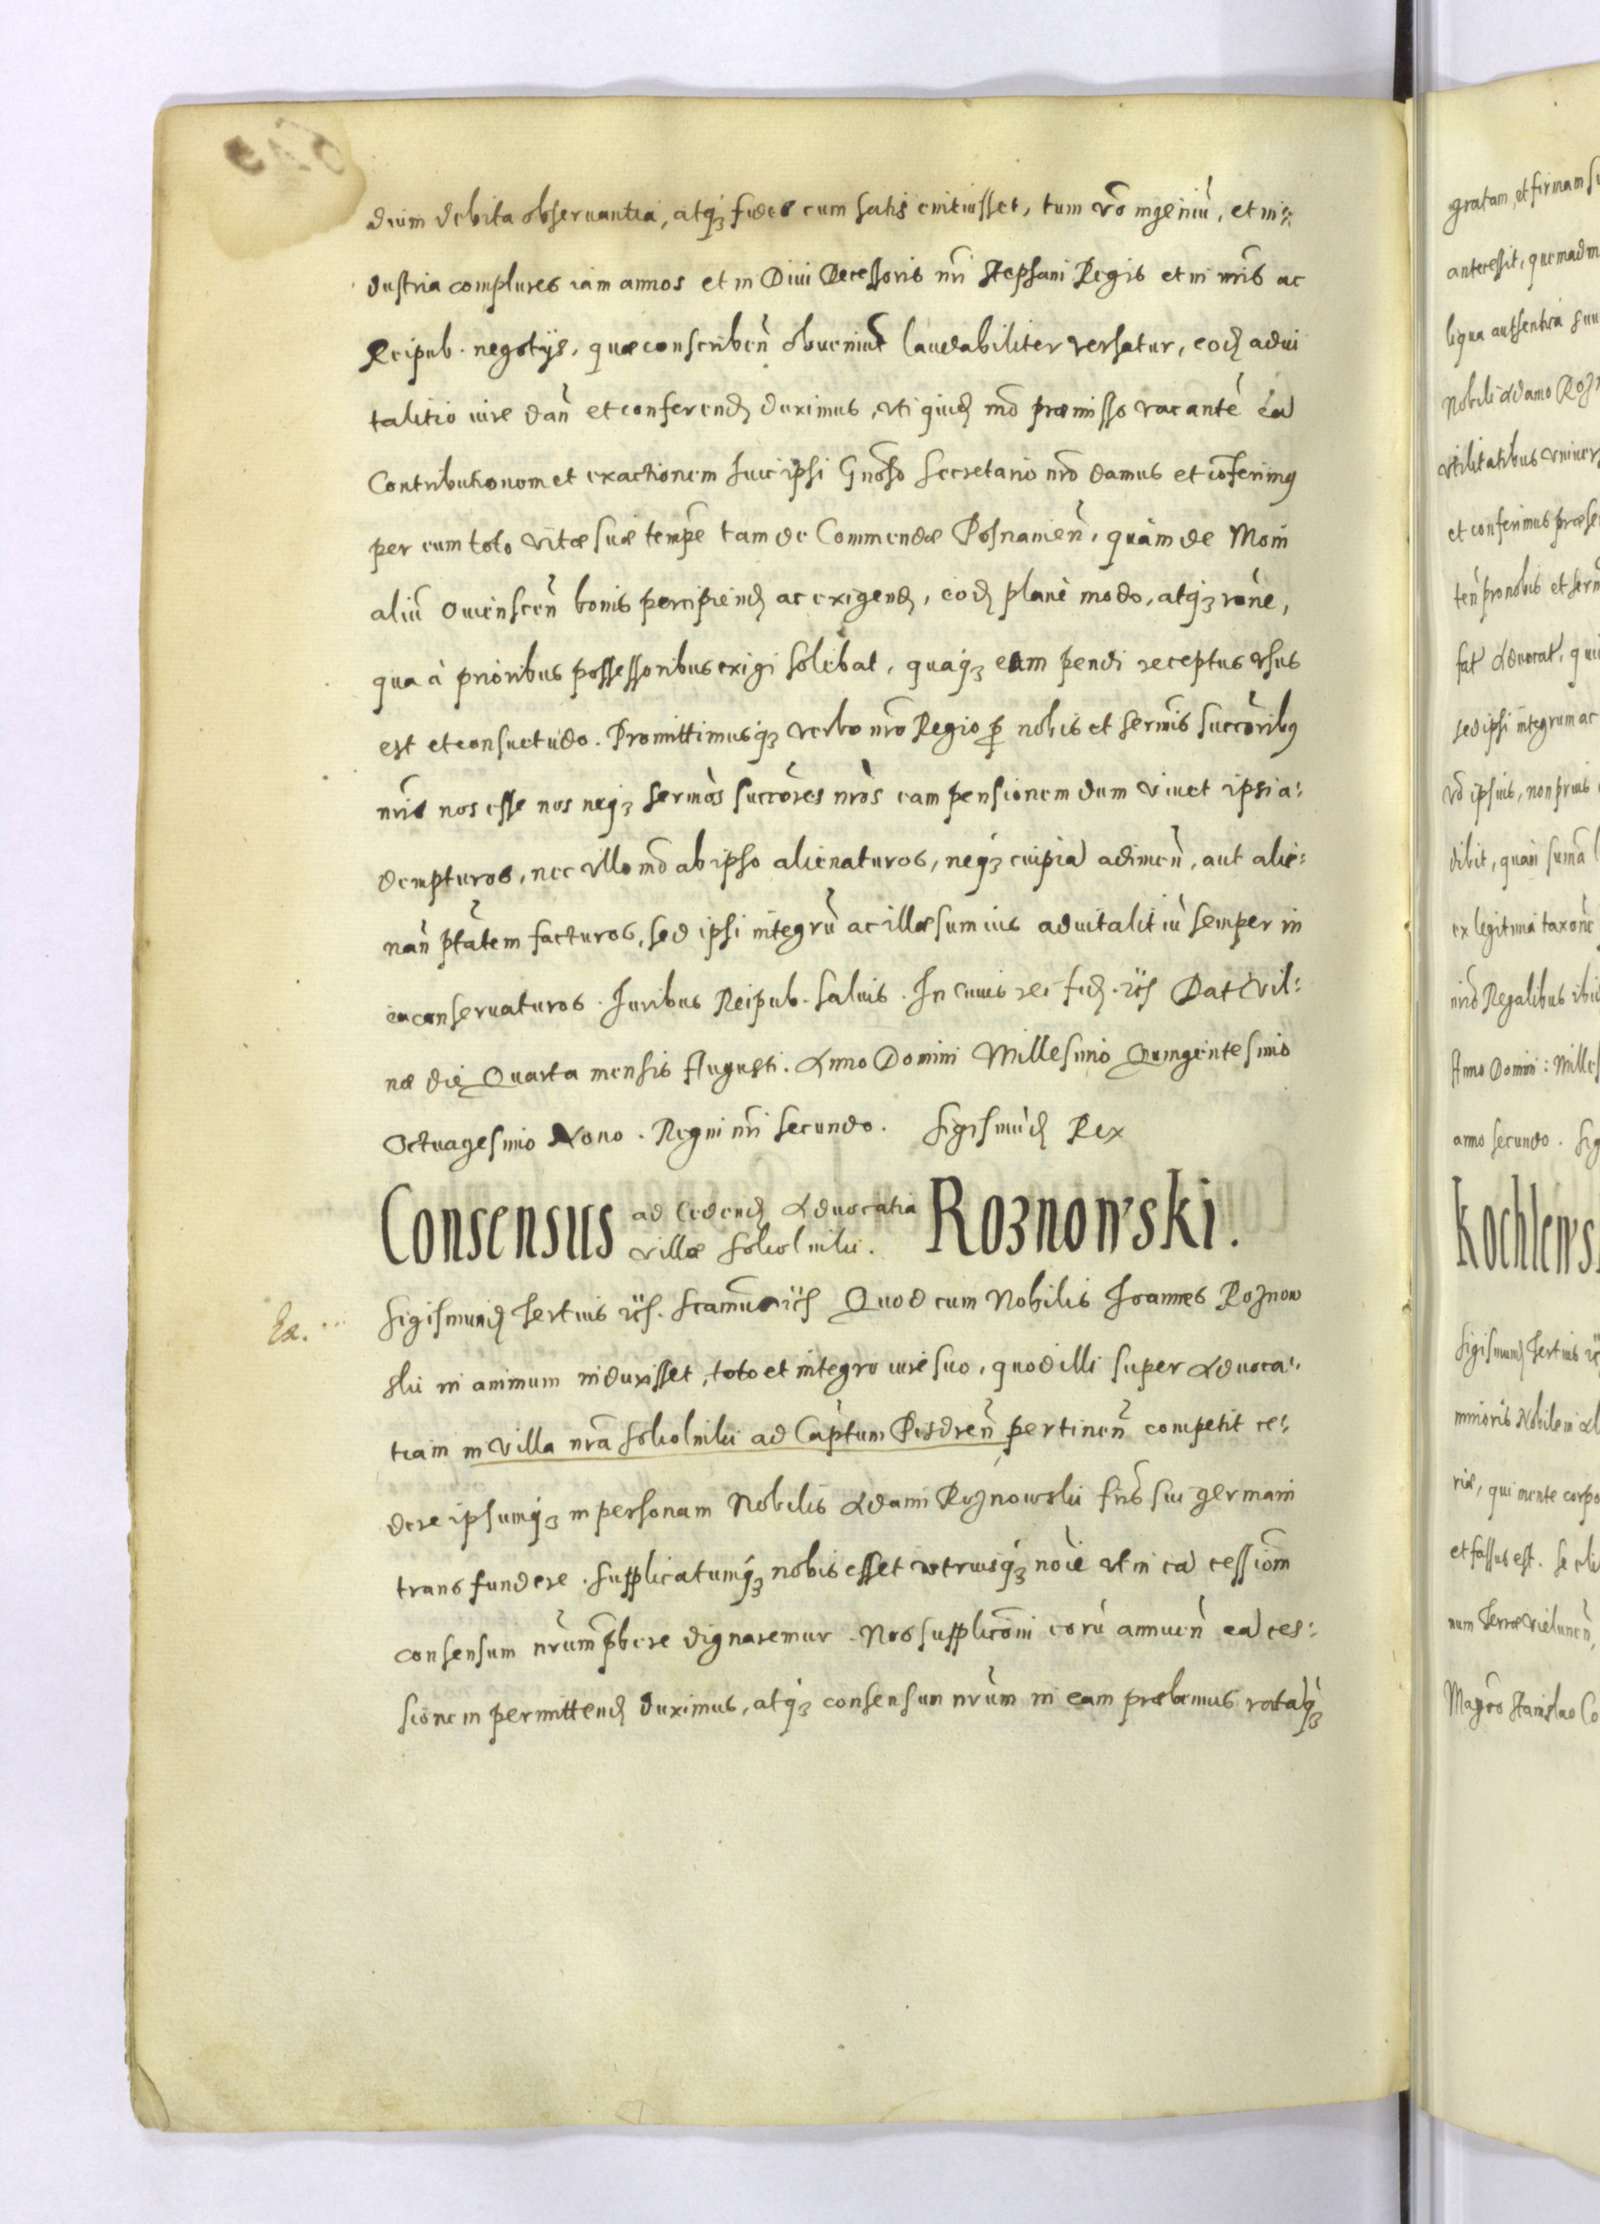 dium debita observantia, atq3 fides cum satis enituisset, tum vro ingeniũ, et in=
dustria complures iam annos et in Divi Decessoris nri Stephani Regis et in nris ac
Reipub. negotijs, quae conscriben obveniut laudabiliter versatur, eod advi
talitio iure dan et conferend duximus, uti quid mo praemisso vacante ea
Contributionem et exactionem huic ipsi Gnoso Secretario nro damus et coferimus
per eum toto vitae suae tempe tam de Commendae Posnanien, quam de Mon
aliũ Owienscen bonis percipiend ac exigend, eod plane modo, atq3 rone,
qua à prioribus possessoribus exigi solebat, quaq3 eam pendi receptus usus
est et consuetudo. Promittimusq3 verbo nro Regio p nobis et sermis succoribus
nris nos esse nos neq3 sermos succores nros eam pensionem dum vivet ipsi a=
dempturos, nec ullo mo ab ipso alienaturos, neq3 cuipia adimen, aut alie=
nan ptatem facturos, sed ipsi integrũ ac illaesum ius advitalitiũ semper in
ea conservaturos. Juribus Reipub. salvis. In cuius rei fid. rcs Dat Vil=
nae die Quarta mensis Augusti. Anno Domini Millesimo Quingentesimo
Octuagesimo Nono. Regni nri secundo. Sigismud Rex
Consensus ad Cedend Advocatia Roznowski.
villae Sokolniki.
Ex. Sigismund Tertius rcs. Scamus rcs Quod cum Nobilis Joannes Roznow
ski in animum induxisset, toto et integro iure suo, quod illi super Advoca=
tiam in Villa nra Sokolniki ad Captum Pisdren pertinen competit ce=
dere ipsumq3 in personam Nobilis Adami Roznowski fris sui germani
transfundere. Supplicatumq3 nobis esset utriusq3 noie ut in ea cessiom
consensum nrum pbere dignaremur. Nos supplicõni eorũ annuen ea ces=
sionem permittend duximus, atq3 consensum nrum in eam praebemus rataq3
gratam, et firmam
antecessit, quemadm
liqua authentica
Nobili Adamo Rozn
utilitatibus univer
et conferimus praese
ten pro nobis et
fat Advocat, qui
sed ipsi integrum ac
vo ipsius, non prius
debit, quam suma
ex legitima taxone
niro Regalibus ibi
Anno Domini: Milles
anno secundo. Sig
Kochlews
Sigismund Tertius
minoris Nobilem
riae, qui mente corpo
et fassus est. Se
num Terrae Vielunen,
Magco Stanislao Co